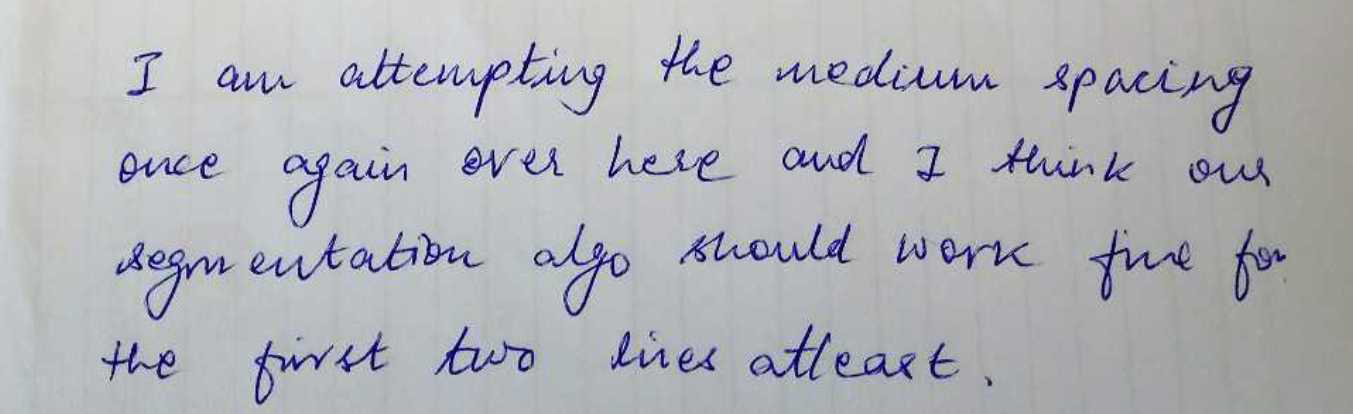 I am attempting the medium spacing
once again over here and I think our
segmentation algo should work fine for
the first two lines atleast.